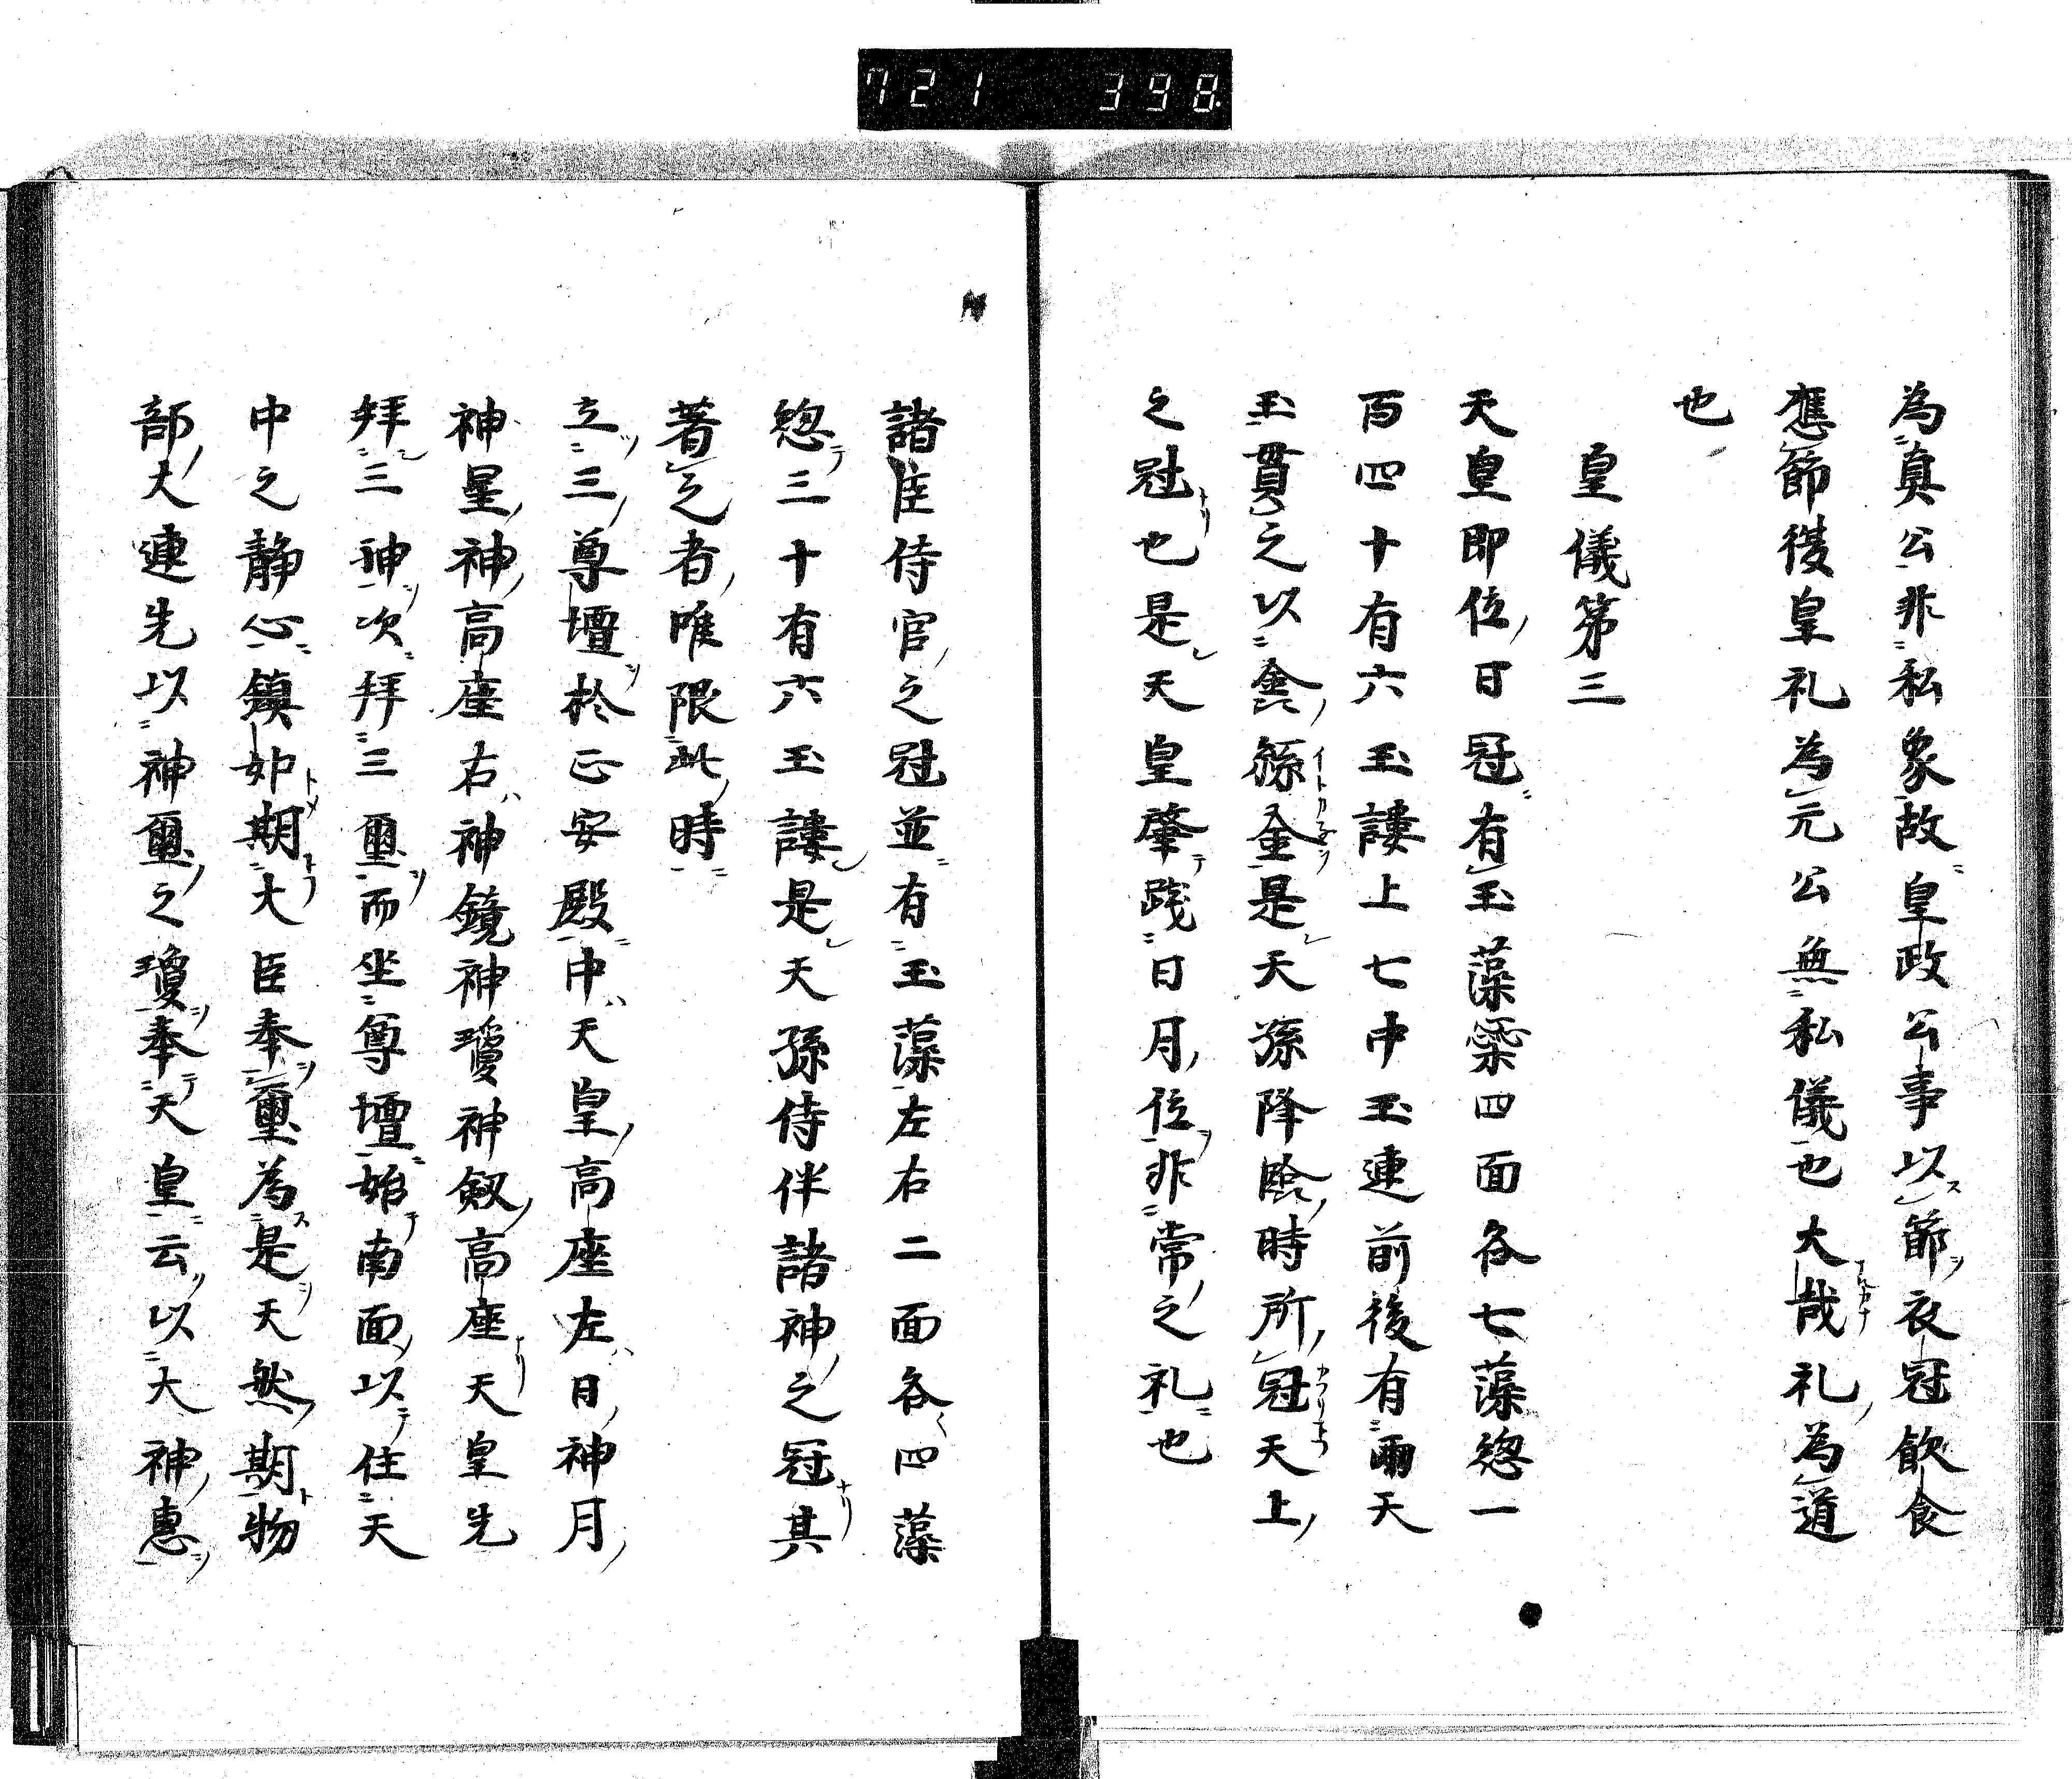 721 398
為真公非私象故皇政公事以節衣冠飲食
應節復皇礼為元公無私儀也大哉礼為道
也
皇儀第三
天皇即位日冠有玉藻蘂四面各七藻惣一
百四十有六玉謱上七中玉連前後有爾天
玉貫之以含綔金是天孫降臨時所冠天上
之冠也是天皇肇踐日月位非常之礼也
諸臣侍官之冠並有玉藻左右二面各四藻
惣三十有六玉謱是天孫侍伴諸神之冠其
著之者唯限此時
立三尊壇於正安殿中天皇高座左日神月
神星神高座右神鏡神瓊神劔高座天皇先
拜三神次拜三璽而坐尊壇始南面以住天
中之静心鎮如期大臣奉璽為是天然期物
部大連先以神璽之瓊奉天皇云以大神惠